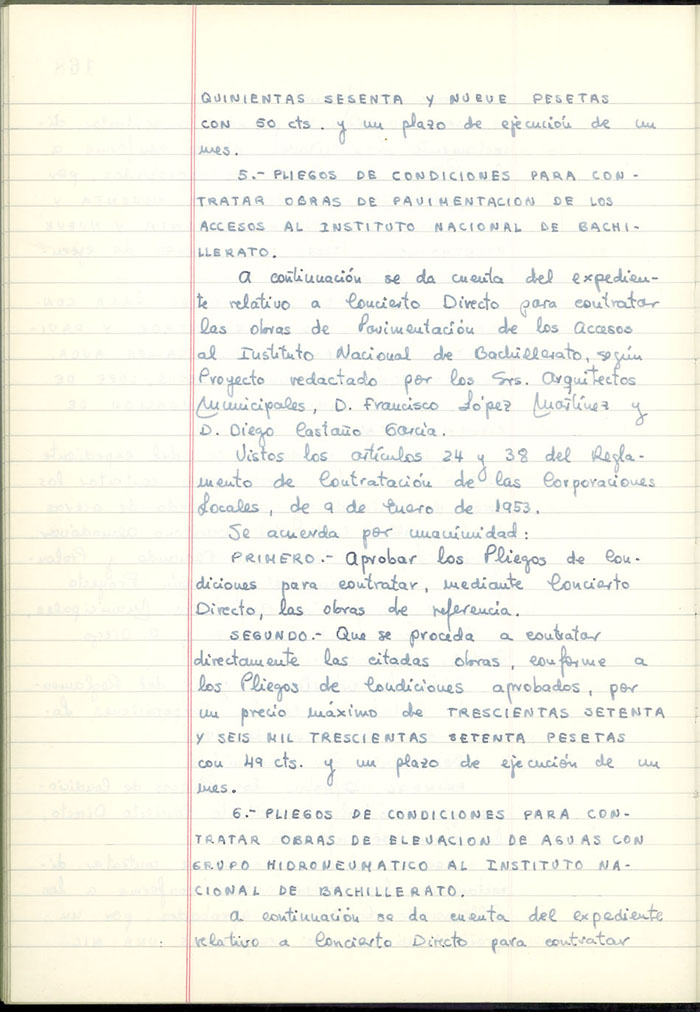 QUINIENTAS SESENTA Y NUEVE PESETAS
CON 50 cts. y un plazo de ejecución de un
mes.
5.- PLIEGOS DE CONDICIONES PARA CON-
TRATAR OBRAS DE PAVIMENTACION DE LOS
ACCESOS AL INSTITUTO NACIONAL DE BACHI-
LLERATO.
A continuación se da cuenta del expedien-
te relativo a Concierto Directo para contratar
las obras de Pavimentación de los Accesos
al Instituto Nacional de Bachillerato, según
Proyecto redactado por los Srs. Arquitectos
Municipales, D. Francisco López Martínez y
D. Diego Castaño García.
Vistos los artículos 24 y 38 del Regla-
mento de Contratación de las Corporaciones
Locales, de 9 de Enero de 1953.
Se acuerda por unanimidad:
PRIMERO.- Aprobar los Pliegos de Con-
diciones para contratar, mediante Concierto
Directo, las obras de referencia.
SEGUNDO.- Que se proceda a contratar
directamente las citadas obras, conforme a
los Pliegos de Condiciones aprobados, por
un precio máximo de TRESCIENTAS SETENTA
Y SEIS MIL TRESCIENTAS SETENTA PESETAS
con 49 cts. y un plazo de ejecución de un
mes.
6.- PLIEGOS DE CONDICIONES PARA CON-
TRATAR OBRAS DE ELEVACION DE AGUAS CON
GRUPO HIDRONEUMATICO AL INSTITUTO NA-
CIONAL DE BACHILLERATO.
A continuación se da cuenta del expediente
relativo a Concierto Directo para contratar